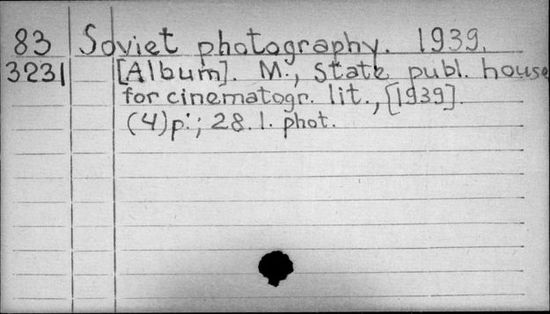 83 Soviet photography. 1939.
3231 [Album]. M., State publ. house
for cinematogr. lit., [1939].
(4)p.; 28. l. phot.